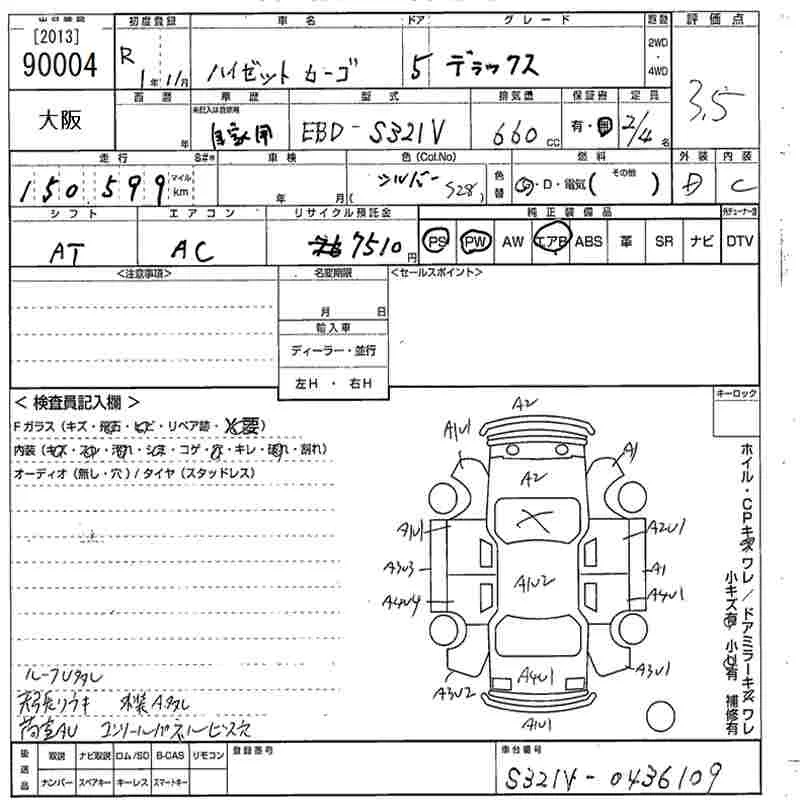 初度登録 車名 ドア グレード 駆動 評価点
[2013]
90004
R 1年 11月 ハイゼット カーゴ 5 デラックス 2WD・4WD 3.5
大阪
西暦 車歴 型式 排気量 保証書 定員
年 自家用 EBD-S321V 660cc 有・無 2/4名
走行 車検 色(Col.No) 燃料 外装 内装
150,599 マイル km 年 月 シルバー (S28) 色替 G・D・電気( その他 ) D C
シフト エアコン リサイクル預託金 純正装備品
AT AC 7510円 PS PW AW エアB ABS 革 SR ナビ DTV
<注意事項> 名変期限 <セールスポイント>
月 日
輸入車
ディーラー・並行
左H ・ 右H
< 検査員記入欄 > キーロック
Fガラス(キズ・飛石・ヒビ・リペア跡・X要)
内装(キズ・スレ・汚れ・シミ・コゲ・穴・キレ・破れ・割れ)
オーディオ(無し・穴)/タイヤ(スタッドレス)
A2
A1U1 A1
A2
X
A1U1 A2U1
A3U3 A1U2 A1
A4U4 A4U1
A4U1
A3U2 A3U1
A1U1
ホイル・CPキズ ワレ/ドアミラーキズ ワレ
小キズ有 小凹有 補修有
ルーフUタレ
天張リウキ 内装Aタレ
荷室AU コンソールパネルビス穴
後送品 取説 ナビ取説 ロム/SD B-CAS リモコン 登録番号 車台番号
ナンバー スペアキー キーレス スマートキー S321V-0436109